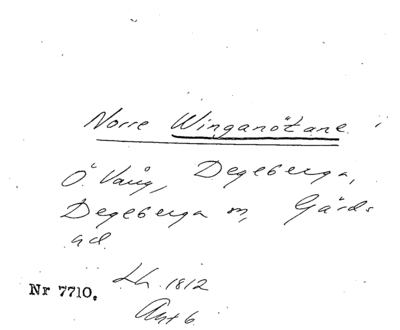 Norre Winganötane
Ö. Vång, Degeberga,
Degeberga sn, Gärds
hd.
Lh. 1812
Nr 7710.
Akt 6